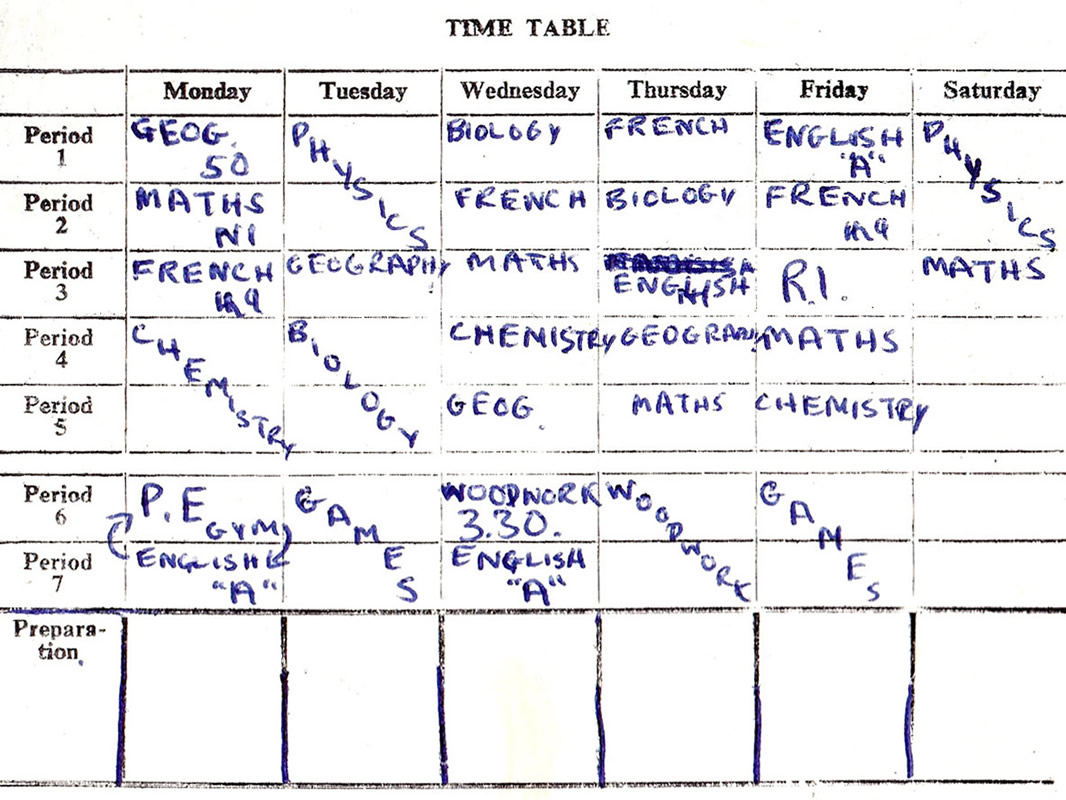 TIME TABLE
Monday Tuesday Wednesday Thursday Friday Saturday
Period 1 GEOG. 50 PHYSICS BIOLOGY FRENCH ENGLISH "A" PHYSICS
Period 2 MATHS N1 FRENCH BIOLOGY FRENCH
Period 3 FRENCH GEOGRAPHY MATHS ENGLISH R.I. MATHS
Period 4 CHEMISTRY BIOLOGY CHEMISTRY GEOGRAPHY MATHS
Period 5 GEOG. MATHS CHEMISTRY
Period 6 P.E GYM GAMES WOODWORK 3.30. WOODWORK GAMES
Period 7 ENGLISH "A" ENGLISH "A"
Prepara-
tion